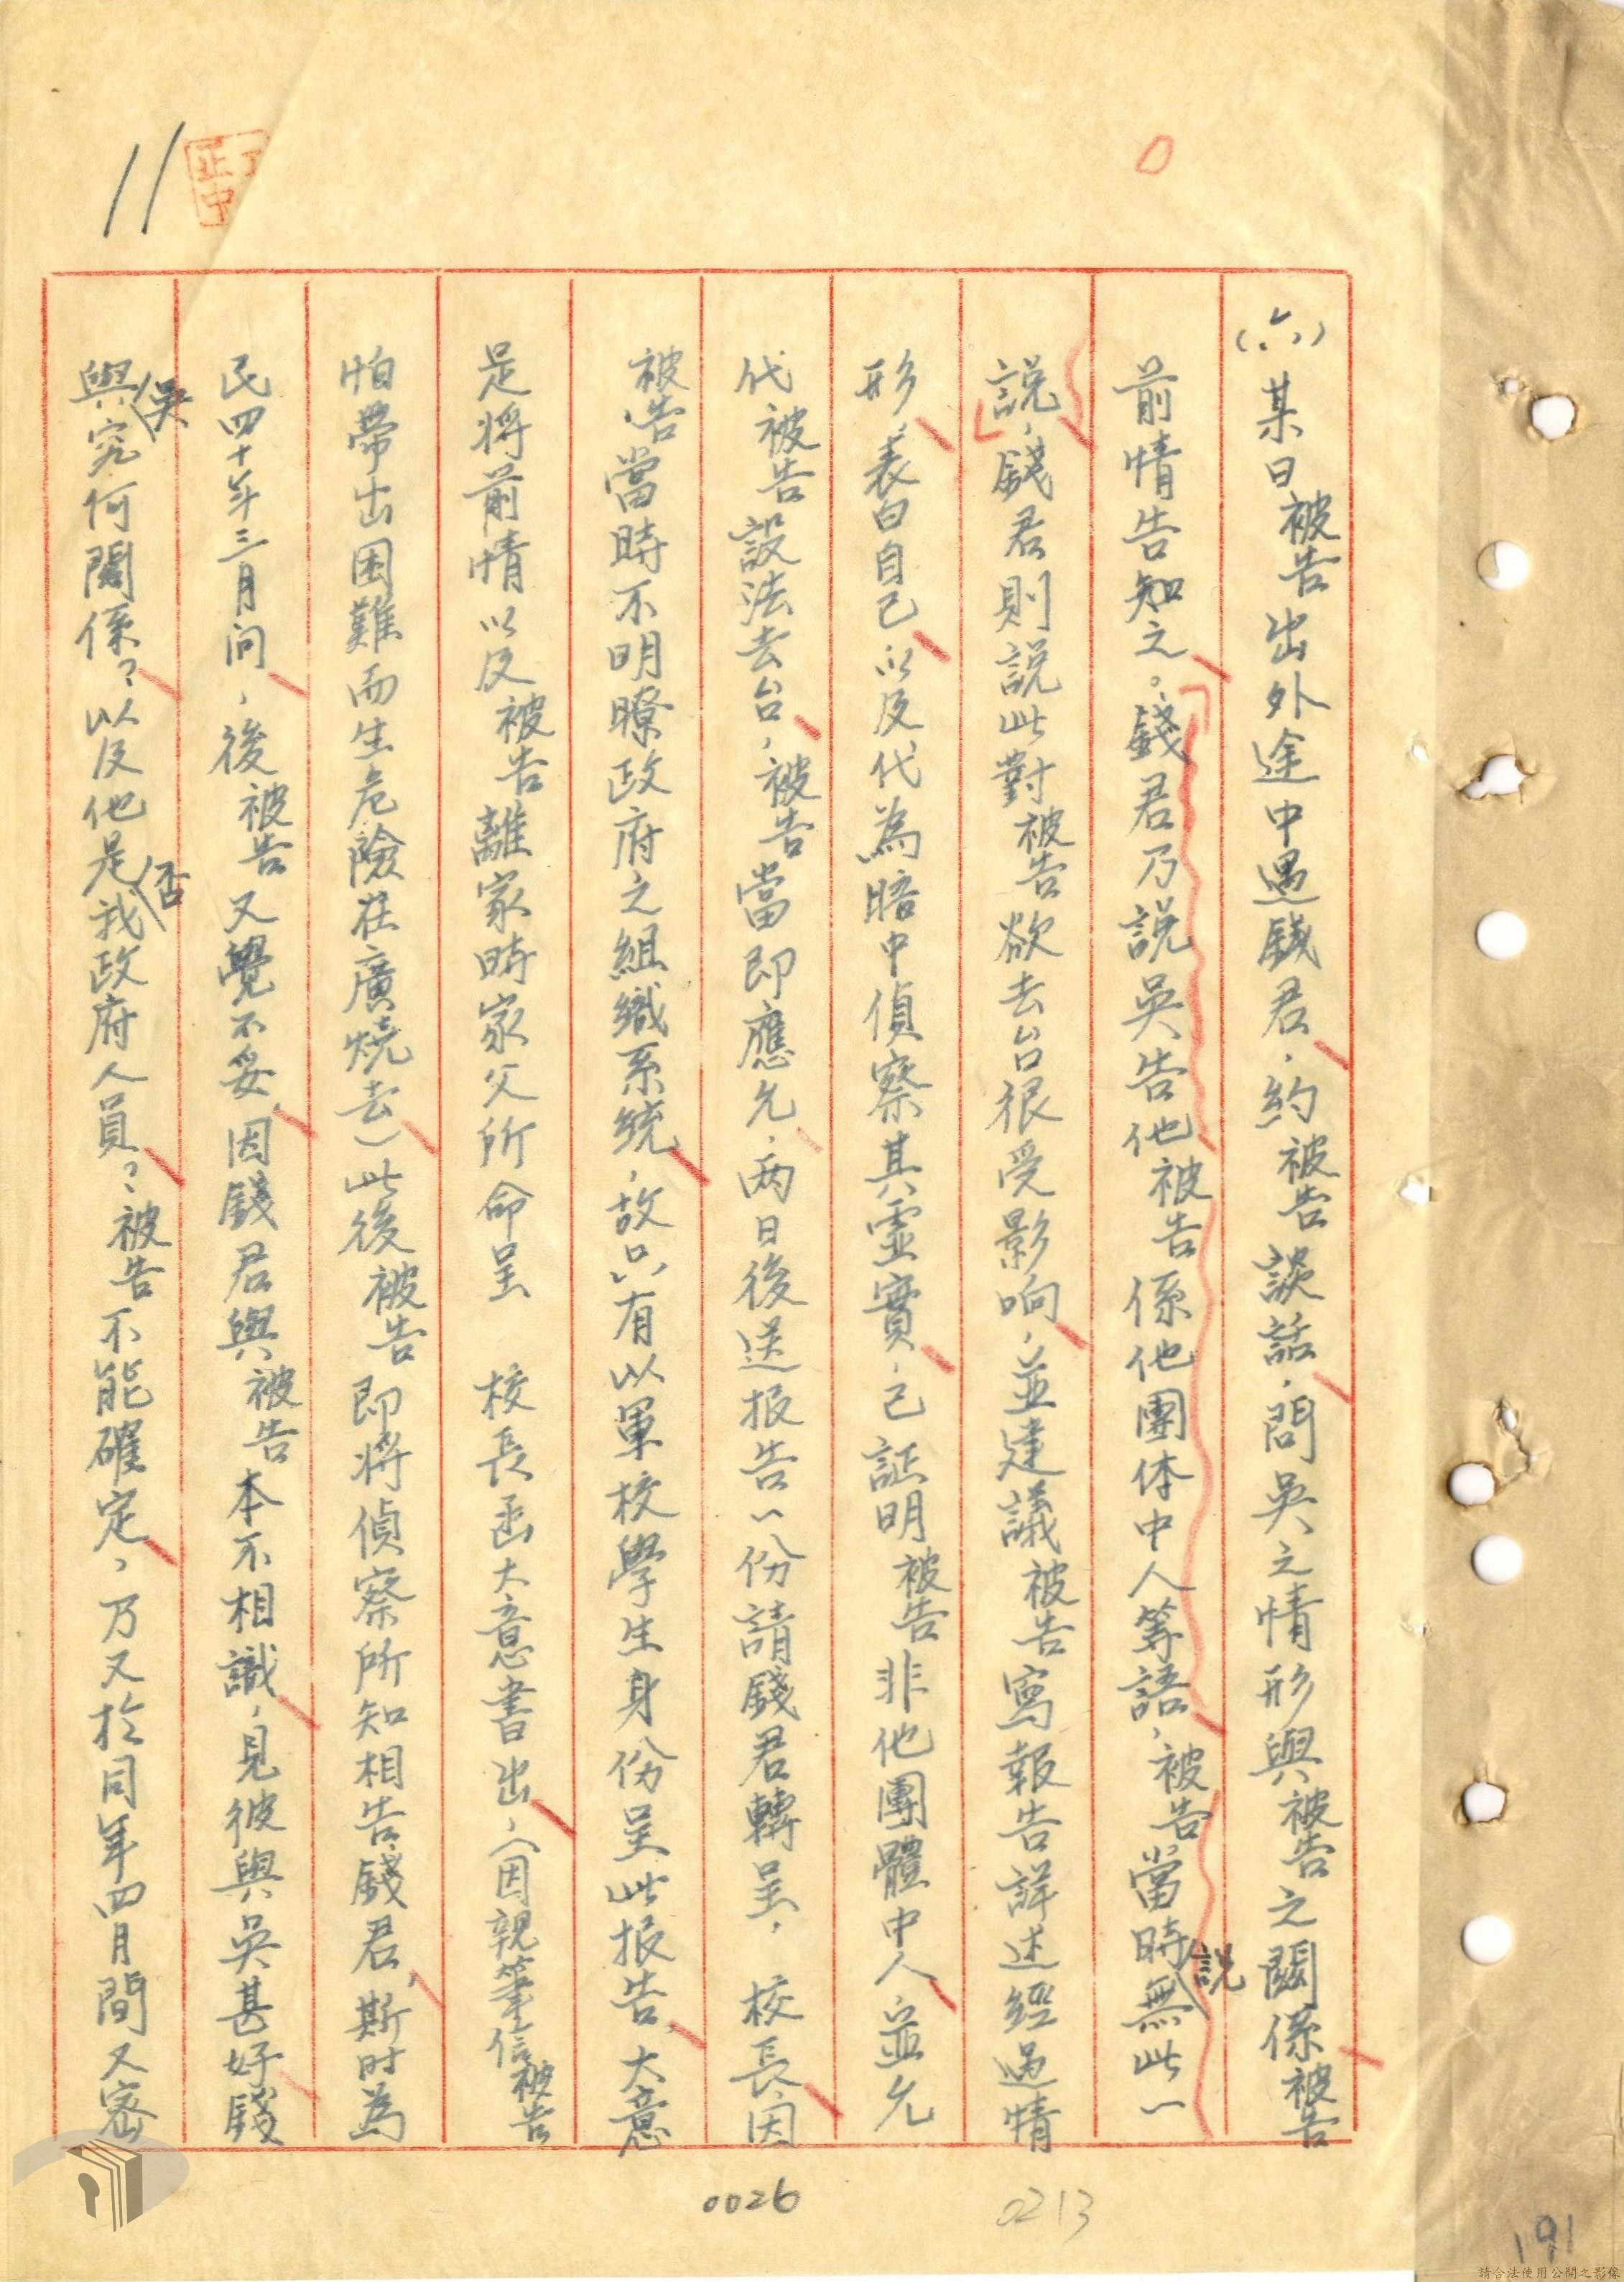 11
丁中正
(六)某日被告出外途中遇錢君，約被告談話，問吳之情形與被告之關係被告
前情告知之。錢君乃說吳告他被告係他團体中人等語，被告當時說無此一
說，錢君則說此對被告欲去台很受影响，並建議被告寫報告詳述經過情
形，表白自己以及代為暗中偵察其虛實，已証明被告非他團體中人並允
代被告設法去台，被告當即應允，兩日後送报告一份請錢君轉呈，　校長，因
被告當時不明瞭政府之組織系統，故只有以軍校學生身份呈此报告，大意
是將前情以及被告離家時家父所命呈　校長函大意書出，（因親筆信被告
怕帶出困難而生危險在廣燒去）此後被告即將偵察所知相告錢君，斯时為
民四十年三月间，後被告又覺不妥，因錢君與被告本不相識，見彼與吳甚好錢
與吳究何關係？以及他是否我政府人員？被告不能確定，乃又於同年四月間又密
0026
0213
191
請合法使用公開之影像